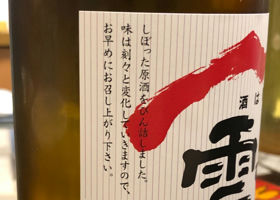 しぼった原酒をびん詰しました。
味は刻々と変化していきますので、
お早めにお召し上がり下さい。
酒は
雪